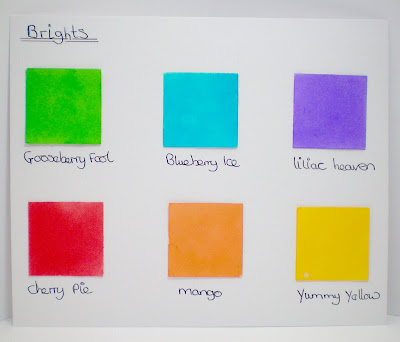 Brights
Gooseberry Fool
Blueberry Ice
liliac heaven
cherry Pie
mango
Yummy Yellow